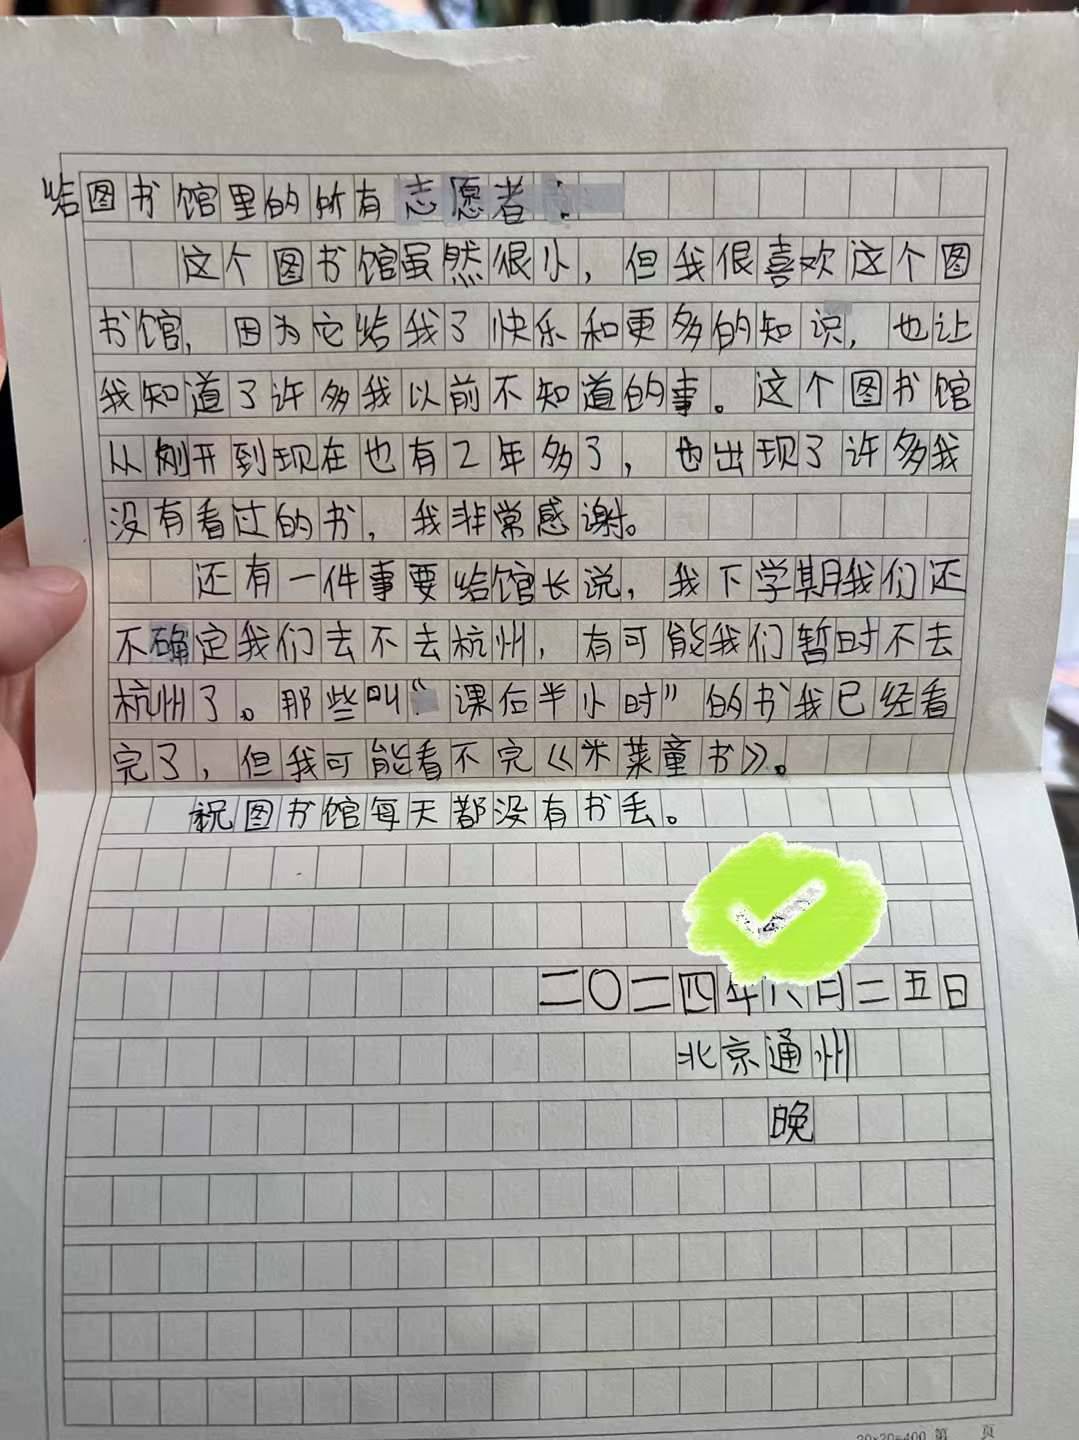 给图书馆里的所有志愿者：
这个图书馆虽然很小，但我很喜欢这个图
书馆，因为它给我了快乐和更多的知识，也让
我知道了许多我以前不知道的事。这个图书馆
从刚开到现在也有2年多了，也出现了许多我
没有看过的书，我非常感谢。
还有一件事要给馆长说，我下学期我们还
不确定我们去不去杭州，有可能我们暂时不去
杭州了。那些叫“课后半小时”的书我已经看
完了，但我可能看不完《米莱童书》。
祝图书馆每天都没有书丢。
二〇二四年六月二五日
北京通州
晚
20×20=400 第 页